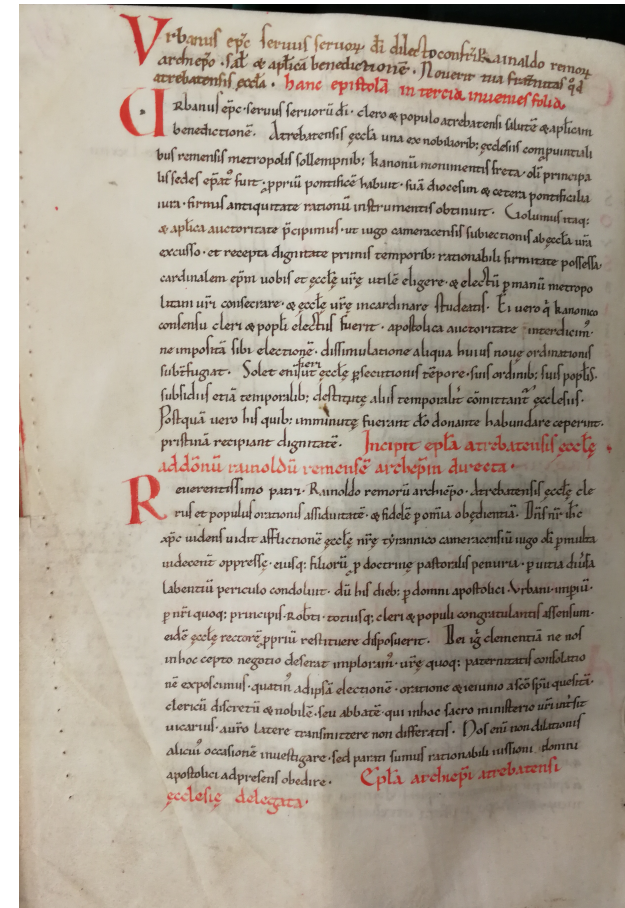 Vrbanus epc̄ servus servoꝝ dī dilecto confrī Rainaldo remoꝝ
archiep̄o · sal̄ & aplicā benedictionē · Noverit tua frāt̄nitas qd̄
atrebatensis eccla̅ · hanc epistolā in tercia invenies folia ·
Urbanus epc̄ · servus servorū dī · clero & populo atrebatensi salutē & aplicam
benedictionē · Atrebatensis eccla̅ una ex nobiliorib; ęcclesiis comp̱vintiali
bus remensis metropolis sollempnib; kanonū monumentis freta · olī principa
lis sedes ep̄at᷒ fuit · p̱priū pontificē habuit · suā diocesim & cetera pontificilia
iura · firmis antiquitate rationū instrumentis obtinuit · Volumus itaq;
& aplica auctoritate p̄cipimus · ut iugo cameracensis subiectionis ab eccla̅ vr̄a
excusso · et recepta dignitate primis temporib; rationabili firmitate possessa ·
cardinalem ep̄m vobis et eccłę vr̄ę utilē eligere · & electū p̱ manū metropo
litani vr̄i consecrare · & eccłę vr̄ę incardinare studeatis · Ei vero qͥ kanonico
consensu cleri & popłi electus fuerit · apostolica auctoritate interdicim᷒ ·
ne impositā sibi electionē · dissimulatione aliqua huius novę ordinationis
subt̄fugiat · Solet eni᷒ fieri ut eccłę p̱secutionis tēpore · suis ordinib; suis popłis ·
subsidiis etiā temporalib; destitutę aliis temporalit̄ cōmittant᷑ ęcclesiis ·
Postquā vero his quib; imminutę fuerant dō donante habundare ceperint ·
pristinā recipiant dignitatē · Incipit epła atrebatensis eccłę
ad dōnū rainoldū remensē archiep̄m directa ·
Reverentissimo patri · Rainoldo remorū archiep̄o · Atrebatensis eccłę cle
rus et populus orationis assiduitatē · & fidelē p̱ om̄ia obędientiā · Dn̄s nr̄ ih̄c
xp̄c videns vidit afflictionē eccłę nr̄ę tyrannico cameracensiū iugo olī p̱ multa
indecent̄ oppressę · eiusq; filiorū p̱ doctrinę pastoralis penuria · p̱ vitia div̄sa
labentiū periculo condoluit · dū his dieb; p̱ domni apostolici Urbani imp̱iū ·
p̱ nr̄i quoq; principis · Rob̄ti · totiusq; cleri & populi congratulantis assensum ·
eidē eccłę rectorē p̱priū restituere disposuerit · Dei ig̅ clementiā ne nos
in hoc cepto negotio deserat imploram᷒ · vr̄ę quoq; paternitatis consolatio
nē exposcimus · quatin᷒ ad ipsā electionē · oratione & ieiunio a sc̄o sp̄u quesitā ·
clericū discretū & nobilē · seu abbatē · qui in hoc sacro ministerio vr̄i int̄sit
vicarius · a vr̄o latere transmittere non differatis · Nos eni᷒ non dilationis
alicui᷒ occasionē investigare · sed parati sumus rationabili iussioni domni
apostolici ad presens obedire · Epła archiep̄i atrebatensi
ęcclesię delegata ·